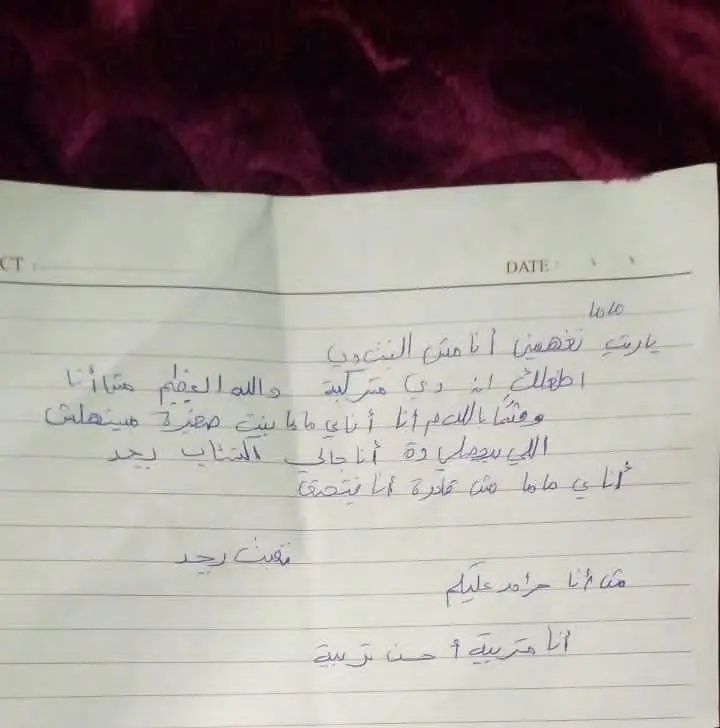 CT :
DATE :
ماما
ياريت تفهميني أنا مش البنت دي
دي متركبة والله العظيم مش أنا
وقسمًا بالله م أنا أنا ي ماما بنت صغيرة مستهلش
اللي بيحصلي دة أنا جالي اكتئاب بجد
أنا ي ماما مش قادرة أنا بتخنق
تعبت بجد
مش أنا حرام عليكم
أنا متربية أحسن تربية